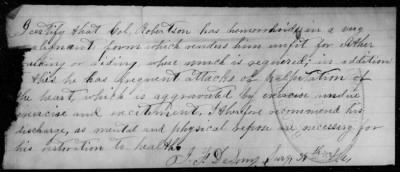 I certify that Col. Robertson has hemorrhoids in a very
malignant form which renders him unfit for either
walking or riding where much is required; in addition
this he has frequent attacks of palpitation of
the heart which is aggravated by exercise undue
exercise and excitement. I therefore recommend his
discharge, as mental and physical repose are necessary for
his restoration to health.
Surg 35th